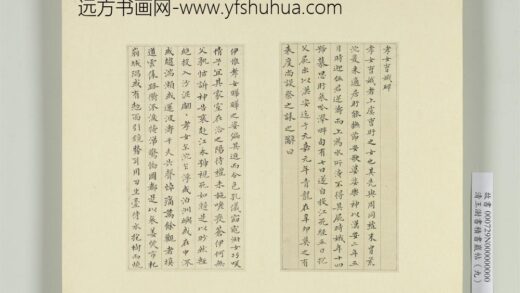 远方书画网-www.yfshuhua.com
孝女曹娥碑
孝女曹娥者上虞曹盱之女也其先與周同祖末胄荒
沉爰來適居盱能撫節安歌婆娑樂神以漢安二年五
月時迎伍君逆濤而上為水所淹不得其屍時娥年十四
號慕思盱哀吟澤畔旬有七日遂自投江死經五日抱
父屍出以漢安迄于元嘉元年青龍在辛卯莫之有
表度尚設祭之誄之辭曰
伊惟孝女曄曄之姿偏其返而令色孔儀窈窕淑女巧笑
倩兮宜其家室在洽之陽待禮未施嗟喪慈父彼蒼伊何無
父孰怙訴神告哀赴江永號視死如歸是以眇然輕
絕投入沙泥翩翩孝女乍沉乍浮或泊洲嶼或在中流
或趨湍瀨或還波濤千夫失聲悼痛萬餘觀者填
道雲集路衢流淚掩涕驚慟國都是以哀姜哭市杞
崩城隅或有剋面引鏡剺耳用刀坐臺待水抱樹而燒
故書 000729N000000000
清王澍書積書巖帖(九)